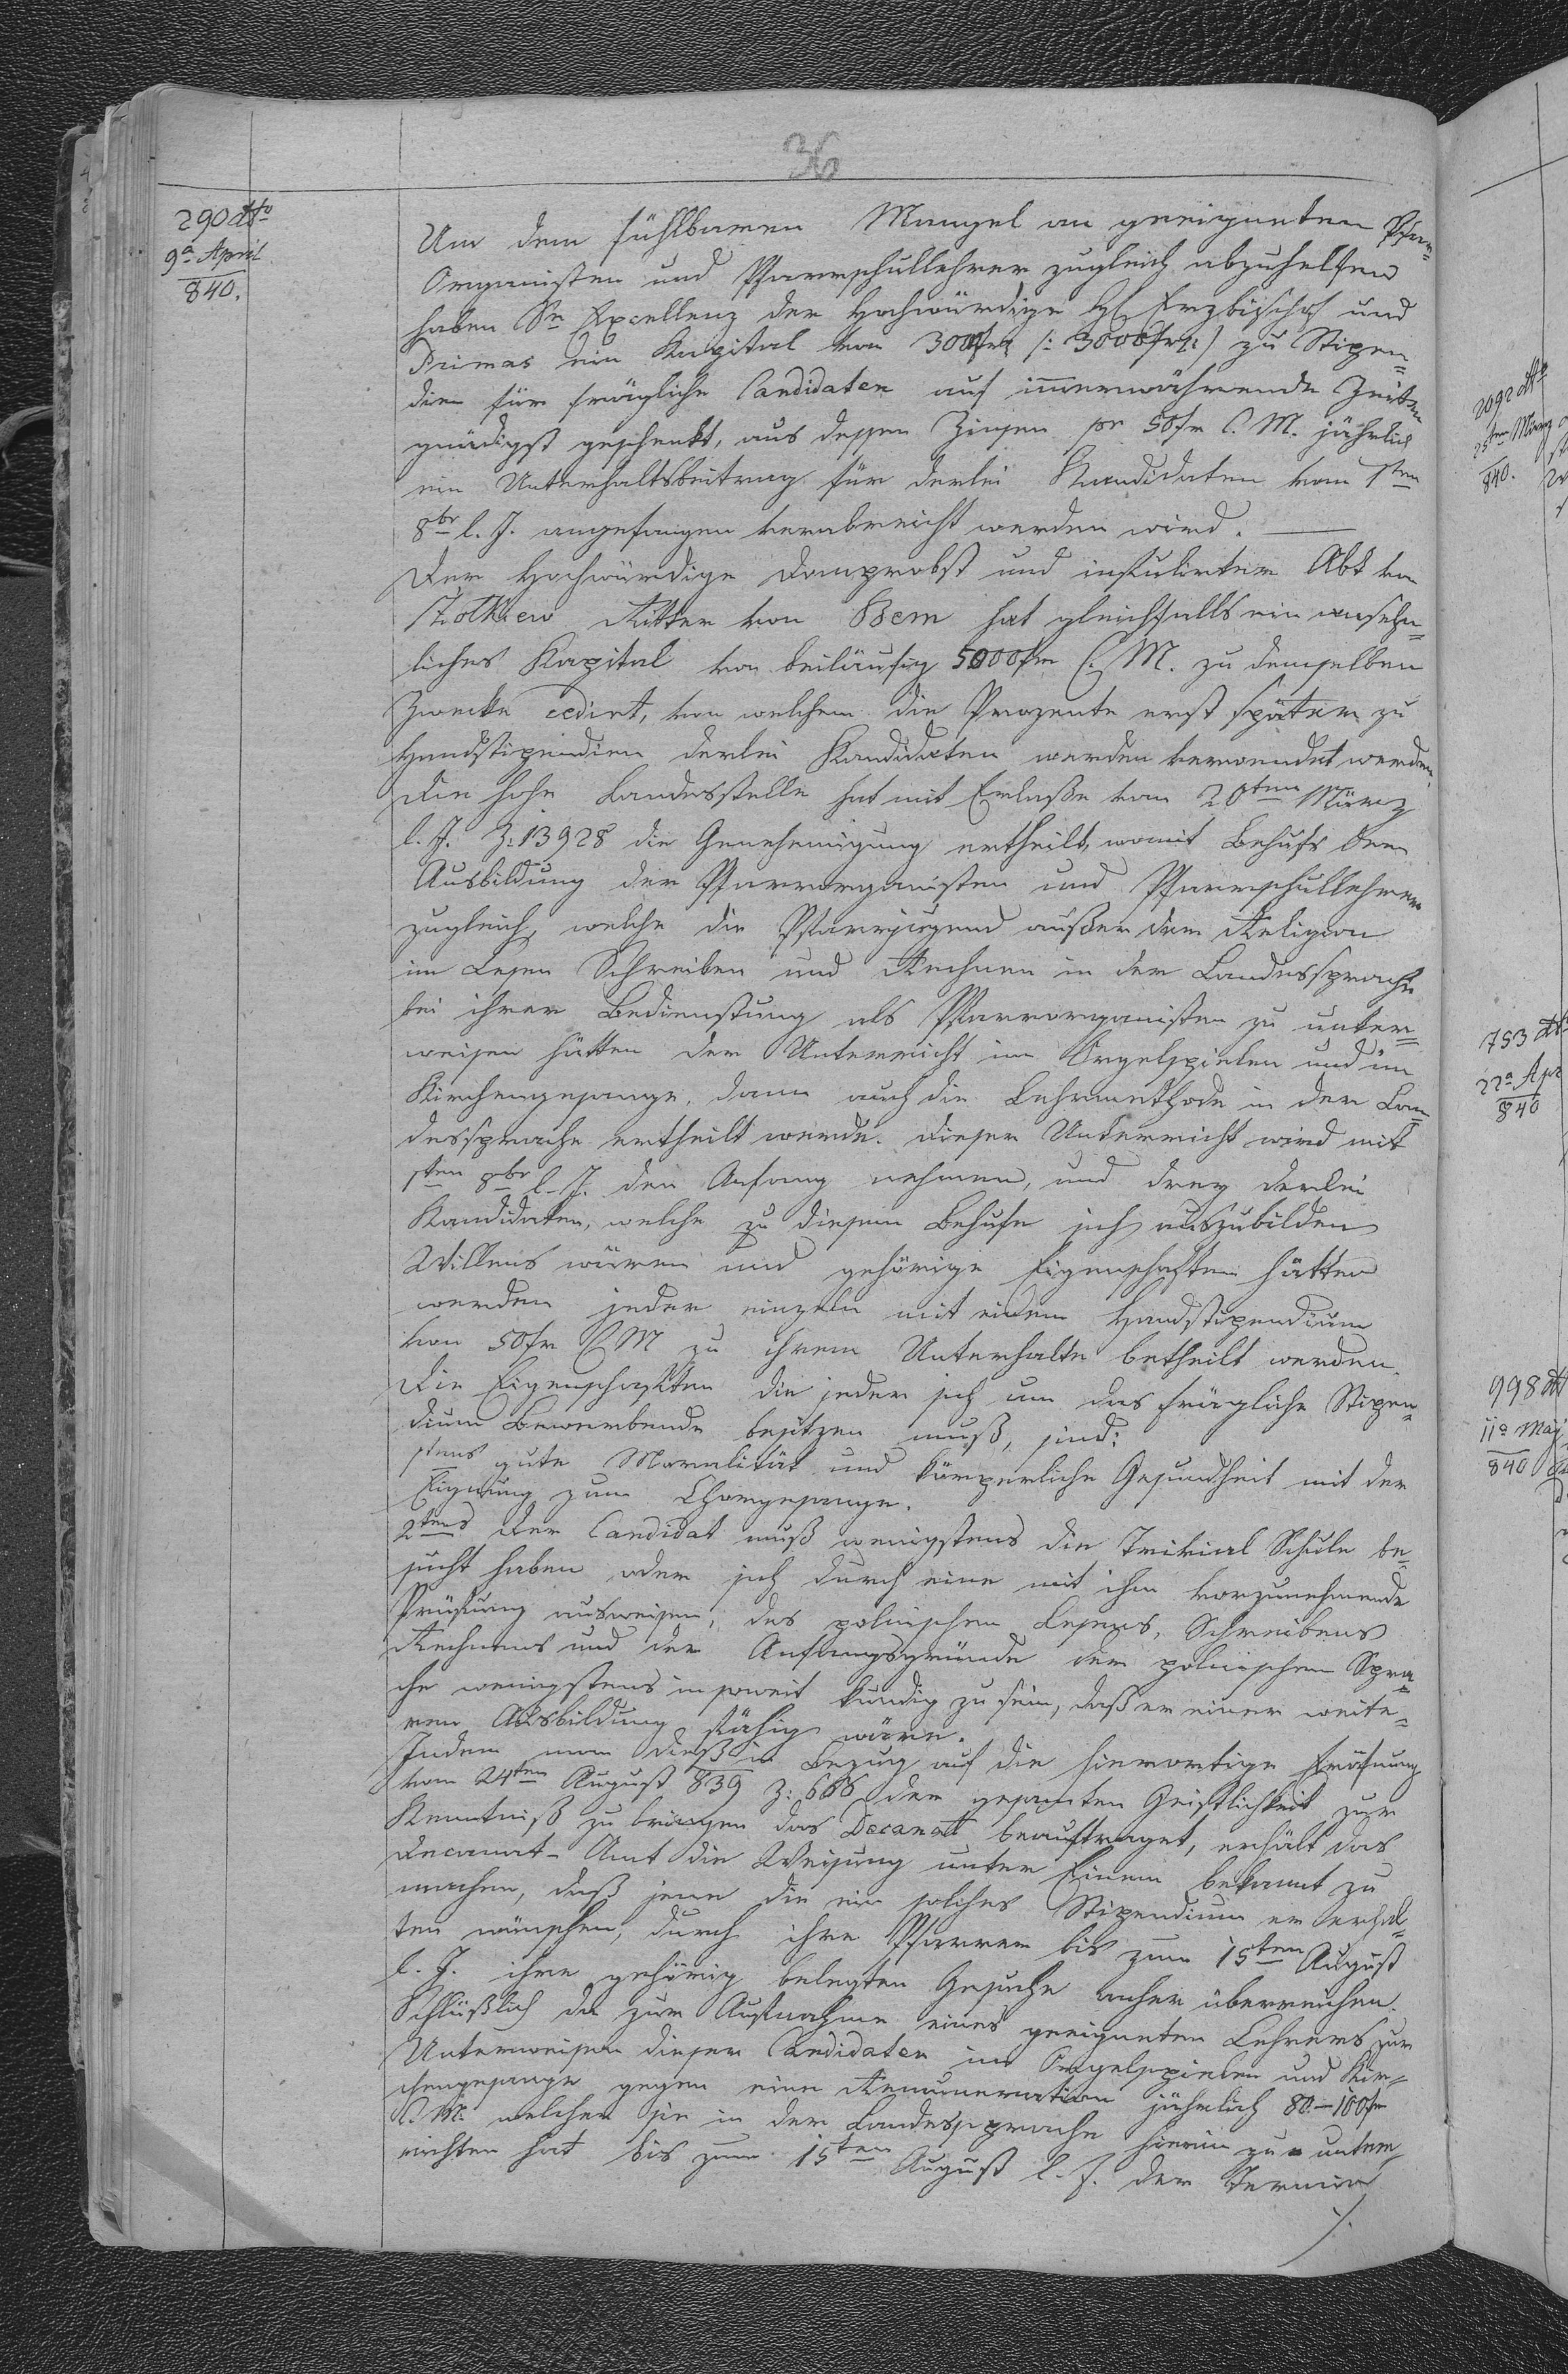 36
290 dtto
9a April
840.
Um dem fühlbaren Mangel an geeigneten Pfarr=
Organisten und Pfarrschullehrer zugleich abzuhelfen
haben Se Excellenz der Hochwürdige H. Erzbischof und
Primas ein Kapital von 3000fr /: 3000fr :/ zu Stipen=
dien für fragliche Candidaten auf immerwährende Zeiten
gnädigst geschenkt, aus dessen Zinsen pr 50fr C. M. jährlich
ein Unterhaltsbeitrag für derlei Kandidaten vom 1ten
8br l. J. angefangen verabreicht werden wird.
Der Hochwürdige Domprobst und infulirter Abt von
Żołkiew Ritter von Bem hat gleichfalls ein ansehn=
liches Kapital von beiläufig 5000fr C. M. zu demselben
Zwecke cedirt, von welchem die Prozente erst später zu
Handstipendien derlei Kandidaten werden verwendet werden.
Die hohe Landesstelle hat mit Erlaße vom 20ten März
l. J. Z: 13928 die Genehmigung ertheilt, womit Behufs der
Ausbildung der Pfarrorganisten und Pfarrschullehrer
zugleich, welche die Pfarrjugend außer der Religion
im Lesen Schreiben und Rechnen in der Landessprache
bei ihrer Bedienstung als Pfarrorganisten zu unter=
weisen hätten der Unterricht im Orgelspielen und im
Kirchengesange, dann auch die Lehrmethode in der Lan=
dessprache ertheilt werde. Dieser Unterricht wird mit
1ten 8br l. J. den Anfang nehmen, und drey derlei
Kandidaten, welche zu diesem Behufe sich auszubilden
Willens wären und gehörige Eigenschaften hätten
werden jeder einzeln mit einem Handstipendium
von 50fr C M zu ihrem Unterhalte betheilt werden.
Die Eigenschaften die jeder sich um das fragliche Stipen=
dium Bewerbende besitzen muß, sind:
1tens gute Moralität und körperliche Gesundheit mit der
Eignung zum Chorgesange.
2tens Der Candidat muß wenigstens die Trivial Schule be=
sucht haben oder sich durch eine mit ihm vorzunehmende
Prüfung ausweisen, des polnischen Lesens, Schreibens
Rechnens und der Anfangsgründe der polnischen Spra=
che wenigstens insoweit kundig zu sein, daß er einer weite=
ren Ausbildung fähig wäre.
Indem man dieß in Bezug auf die hierortige Eröfnung
vom 24ten August 839 Z: 666 der gesamten Geistlichkeit zur
Kenntniß zu bringen das Decanat beauftraget, erhält das
Decanat-Amt die Weisung unter Einem bekannt zu
machen, daß jene die ein solches Stipendium zu erhal=
ten wünschen, durch ihre Pfarrer bis zum 15ten August
l. J. ihre gehörig belegten Gesuche anher überreichen.
Schlüßlich da zur Aufnahme eines geeigneten Lehrers zum
Unterweisen dieser Candidaten im Orgelspielen und Kir=
chengesange gegen eine Remuneration jährlich 80-100fr
C. M. welcher sie in der Landessprache hierin zu unter=
richten hat bis zum 15ten August l. J. der Termin
./.
2092 dtto
25ten März
840.
753 dt
22a Apr
840
998 dt
11a Maj
840